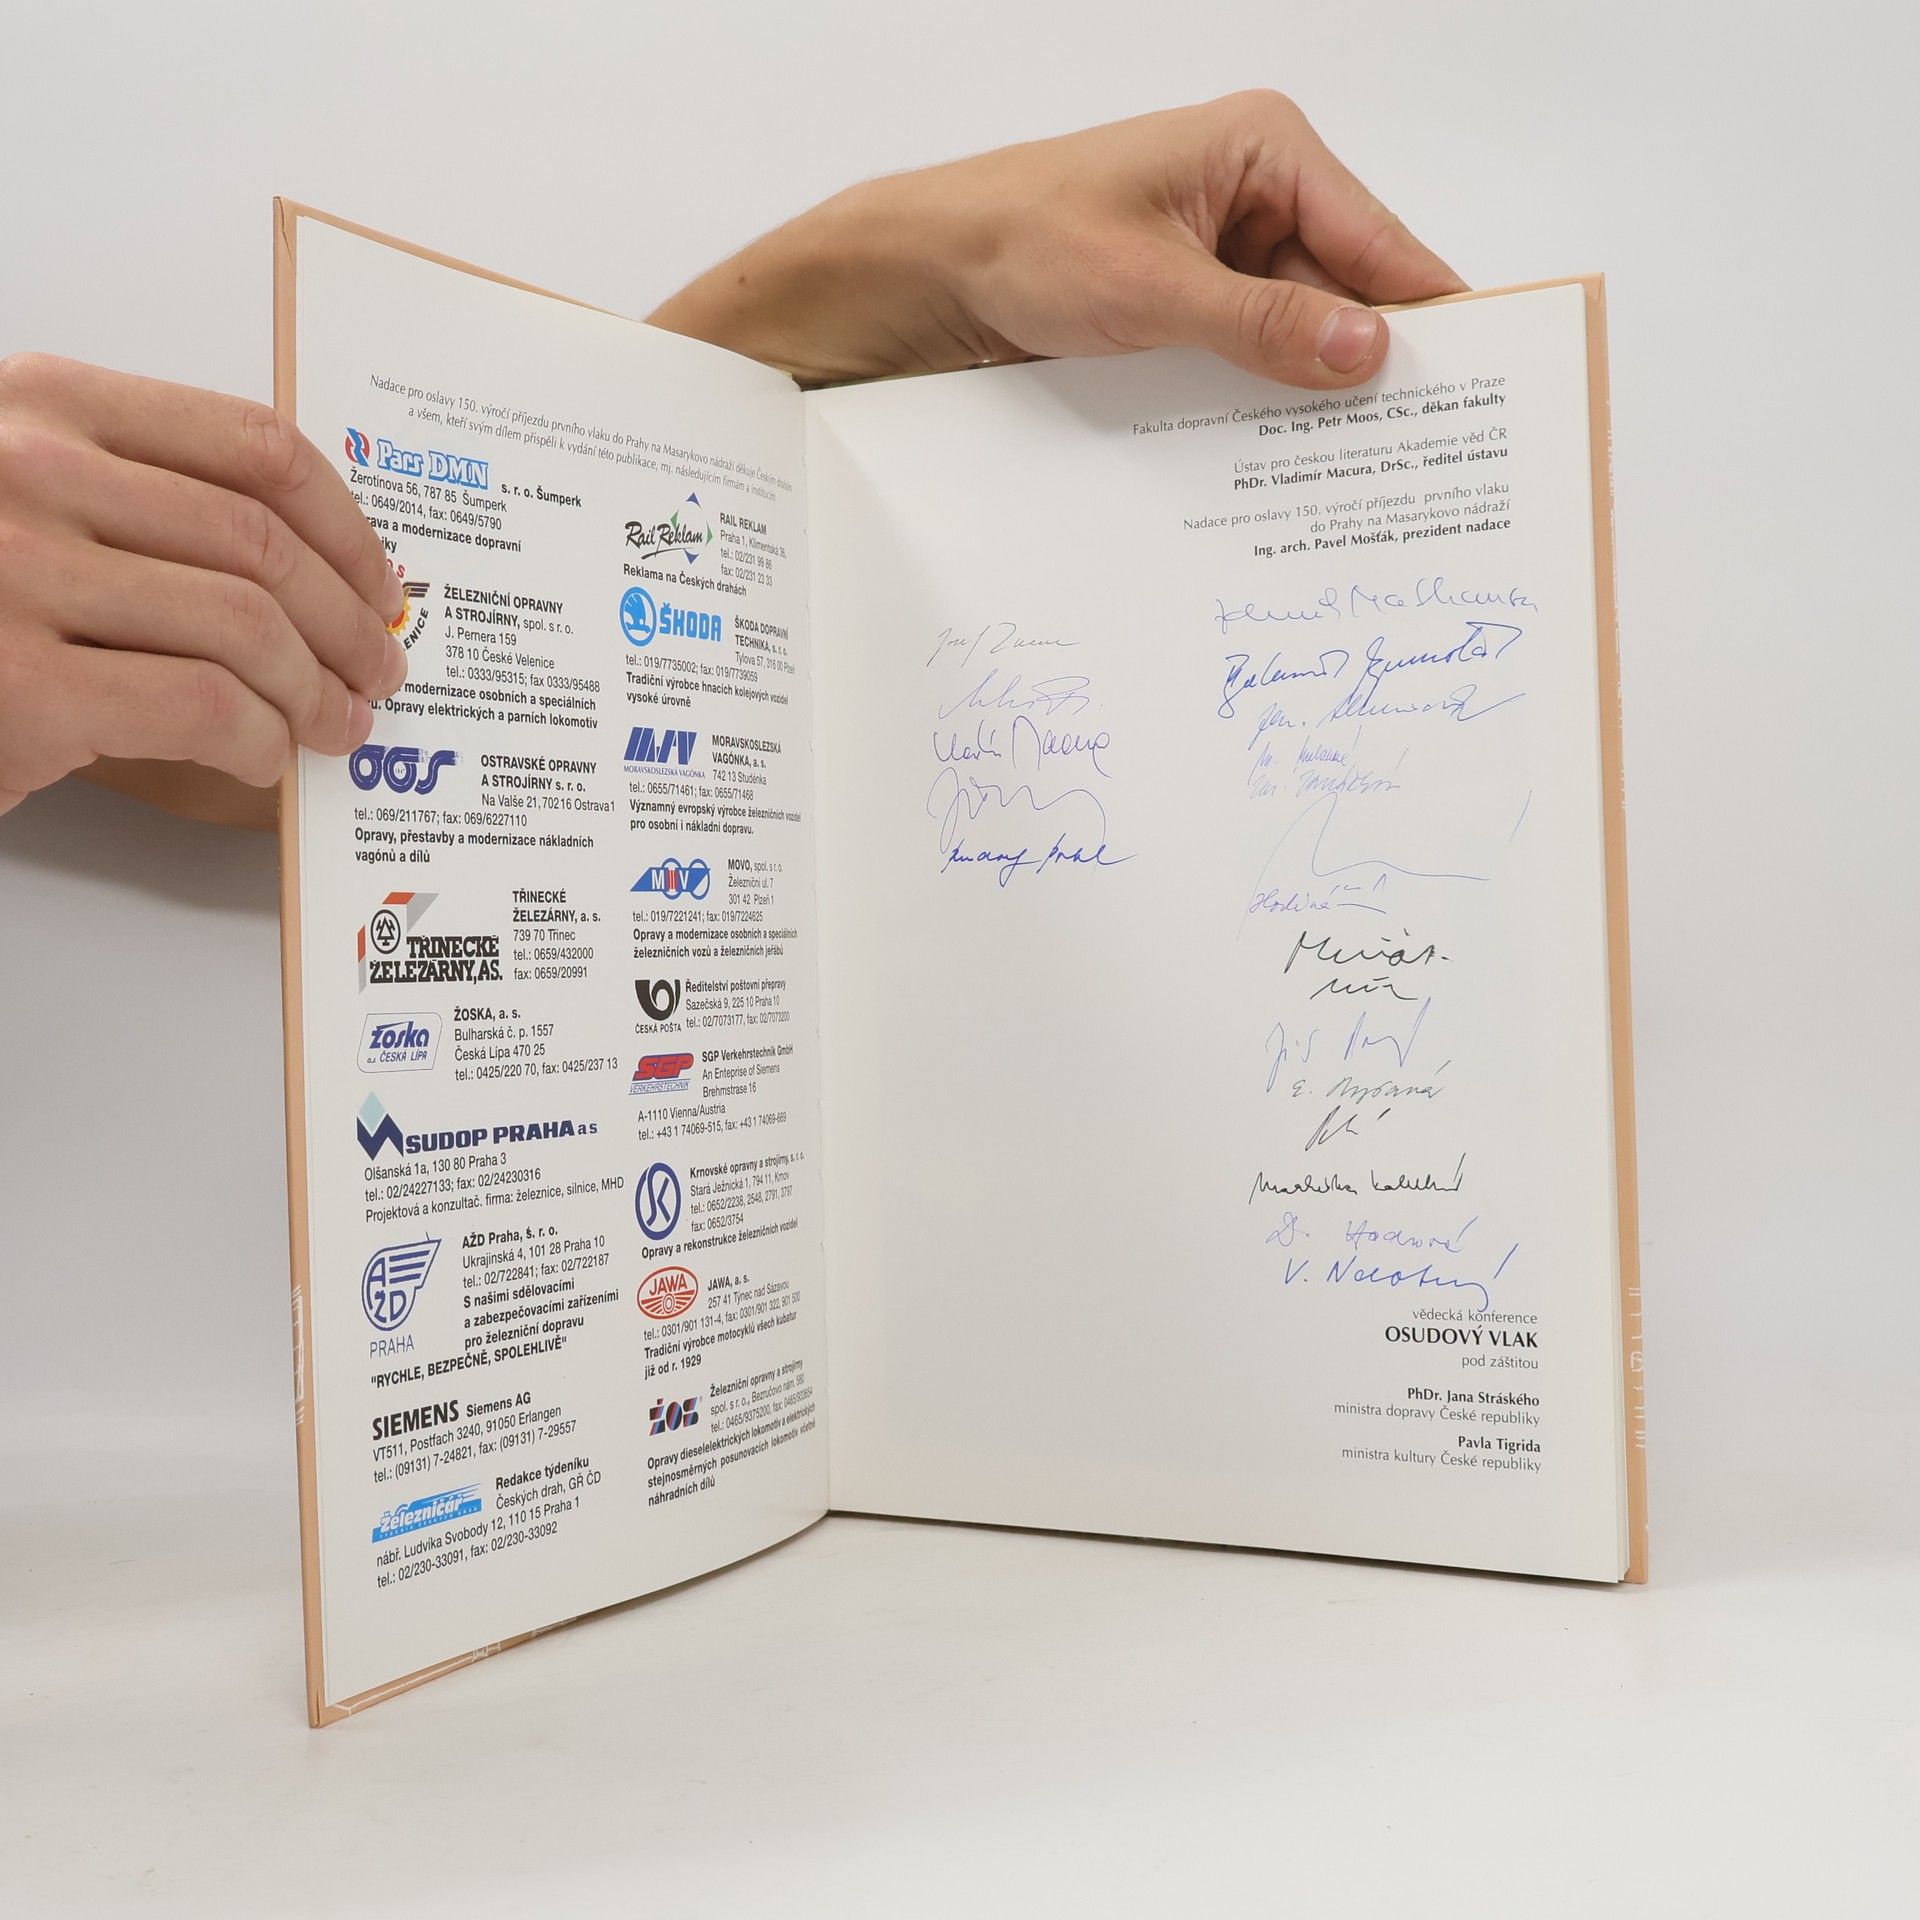 Nadace pro oslavy 150. výročí příjezdu prvního vlaku do Prahy na Masarykovo nádraží děkuje Českým drahám
a všem, kteří svým dílem přispěli k vydání této publikace, mj. následujícím firmám a institucím
Pars DMN s. r. o. Šumperk
Žerotínova 56, 787 85 Šumperk
tel.: 0649/2014, fax: 0649/5790
rava a modernizace dopravní
iky
ŽELEZNIČNÍ OPRAVNY
A STROJÍRNY, spol. s r. o.
J. Pernera 159
378 10 České Velenice
tel.: 0333/95315; fax 0333/95488
modernizace osobních a speciálních
Opravy elektrických a parních lokomotiv
OOS
OSTRAVSKÉ OPRAVNY
A STROJÍRNY s. r. o.
Na Valše 21, 702 16 Ostrava1
tel.: 069/211767; fax: 069/6227110
Opravy, přestavby a modernizace nákladních
vagónů a dílů
TŘINECKÉ
ŽELEZÁRNY, AS.
TŘINECKÉ
ŽELEZÁRNY, a. s.
739 70 Třinec
tel.: 0659/432000
fax: 0659/20991
žoska
a.s. ČESKÁ LÍPA
ŽOSKA, a. s.
Bulharská č. p. 1557
Česká Lípa 470 25
tel.: 0425/220 70, fax: 0425/237 13
SUDOP PRAHA as
Olšanská 1a, 130 80 Praha 3
tel.: 02/24227133; fax: 02/24230316
Projektová a konzultač. firma: železnice, silnice, MHD
AŽD
PRAHA
AŽD Praha, s. r. o.
Ukrajinská 4, 101 28 Praha 10
tel.: 02/722841; fax: 02/722187
S našimi sdělovacími
a zabezpečovacími zařízeními
pro železniční dopravu
"RYCHLE, BEZPEČNĚ, SPOLEHLIVĚ"
SIEMENS Siemens AG
VT511, Postfach 3240, 91050 Erlangen
tel.: (09131) 7-24821, fax: (09131) 7-29557
železničář
Redakce týdeníku
Českých drah, GŘ ČD
nábř. Ludvíka Svobody 12, 110 15 Praha 1
tel.: 02/230-33091, fax: 02/230-33092
Rail Reklam
RAIL REKLAM
Praha 1, Klimentská 36,
tel.: 02/231 99 86
fax: 02/231 23 33
Reklama na Českých drahách
ŠKODA
ŠKODA DOPRAVNÍ
TECHNIKA, s. r. o.
Tylova 57, 316 00 Plzeň
tel.: 019/7735002; fax: 019/7739059
Tradiční výrobce hnacích kolejových vozidel
vysoké úrovně
MSV
MORAVSKOSLEZSKÁ VAGÓNKA
MORAVSKOSLEZSKÁ
VAGÓNKA, a. s.
742 13 Studénka
tel.: 0655/71461; fax: 0655/71468
Významný evropský výrobce železničních vozidel
pro osobní i nákladní dopravu.
MOVO
MOVO, spol. s r. o.
Železniční ul. 7
301 42 Plzeň 1
tel.: 019/7221241; fax: 019/7224625
Opravy a modernizace osobních a speciálních
železničních vozů a železničních jeřábů
ČESKÁ POŠTA
Ředitelství poštovní přepravy
Sazečská 9, 225 10 Praha 10
tel.: 02/7073177, fax: 02/7073200
SGP
VERKEHRSTECHNIK
SGP Verkehrstechnik GmbH
An Enteprise of Siemens
Brehmstrase 16
A-1110 Vienna/Austria
tel.: +43 1 74069-515, fax: +43 1 74069-669
Krnovské opravny a strojírny, s. r. o.
Stará Ježnická 1, 794 11, Krnov
tel.: 0652/2238, 2548, 2791, 3797
fax: 0652/3754
Opravy a rekonstrukce železničních vozidel
JAWA
JAWA, a. s.
257 41 Týnec nad Sázavou
tel.: 0301/901 131-4, fax: 0301/901 322, 901 500
Tradiční výrobce motocyklů všech kubatur
již od r. 1929
ŽOS
Železniční opravny a strojírny
spol. s r. o., Bezručovo nám. 580
tel.: 0465/9375200, fax: 0465/933654
Opravy dieselelektrických lokomotiv a elektrických
stejnosměrných posunovacích lokomotiv včetně
náhradních dílů
Fakulta dopravní Českého vysokého učení technického v Praze
Doc. Ing. Petr Moos, CSc., děkan fakulty
Ústav pro českou literaturu Akademie věd ČR
PhDr. Vladimír Macura, DrSc., ředitel ústavu
Nadace pro oslavy 150. výročí příjezdu prvního vlaku
do Prahy na Masarykovo nádraží
Ing. arch. Pavel Mošťák, prezident nadace
D. Hodrová
V. Novotný
vědecká konference
OSUDOVÝ VLAK
pod záštitou
PhDr. Jana Stráského
ministra dopravy České republiky
Pavla Tigrida
ministra kultury České republiky